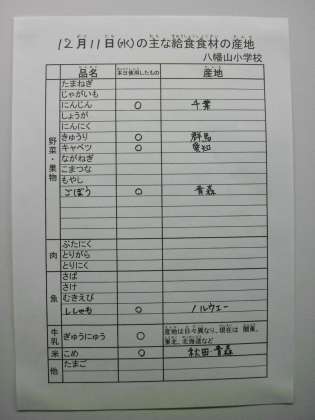 12月11日(水)の主な給食食材の産地
八幡山小学校
品名 本日使用したもの 産地
野菜・果物
たまねぎ
じゃがいも
にんじん ○ 千葉
しょうが
にんにく
きゅうり ○ 群馬
キャベツ ○ 愛知
ながねぎ
こまつな
もやし
ごぼう ○ 青森
肉
ぶたにく
とりがら
とりにく
魚
さば
さけ
むきえび
ししゃも ○ ノルウェー
牛乳 ぎゅうにゅう ○ 産地は日々異なり、現在は 関東、
東北、北海道など
米 こめ ○ 秋田・青森
他 たまご